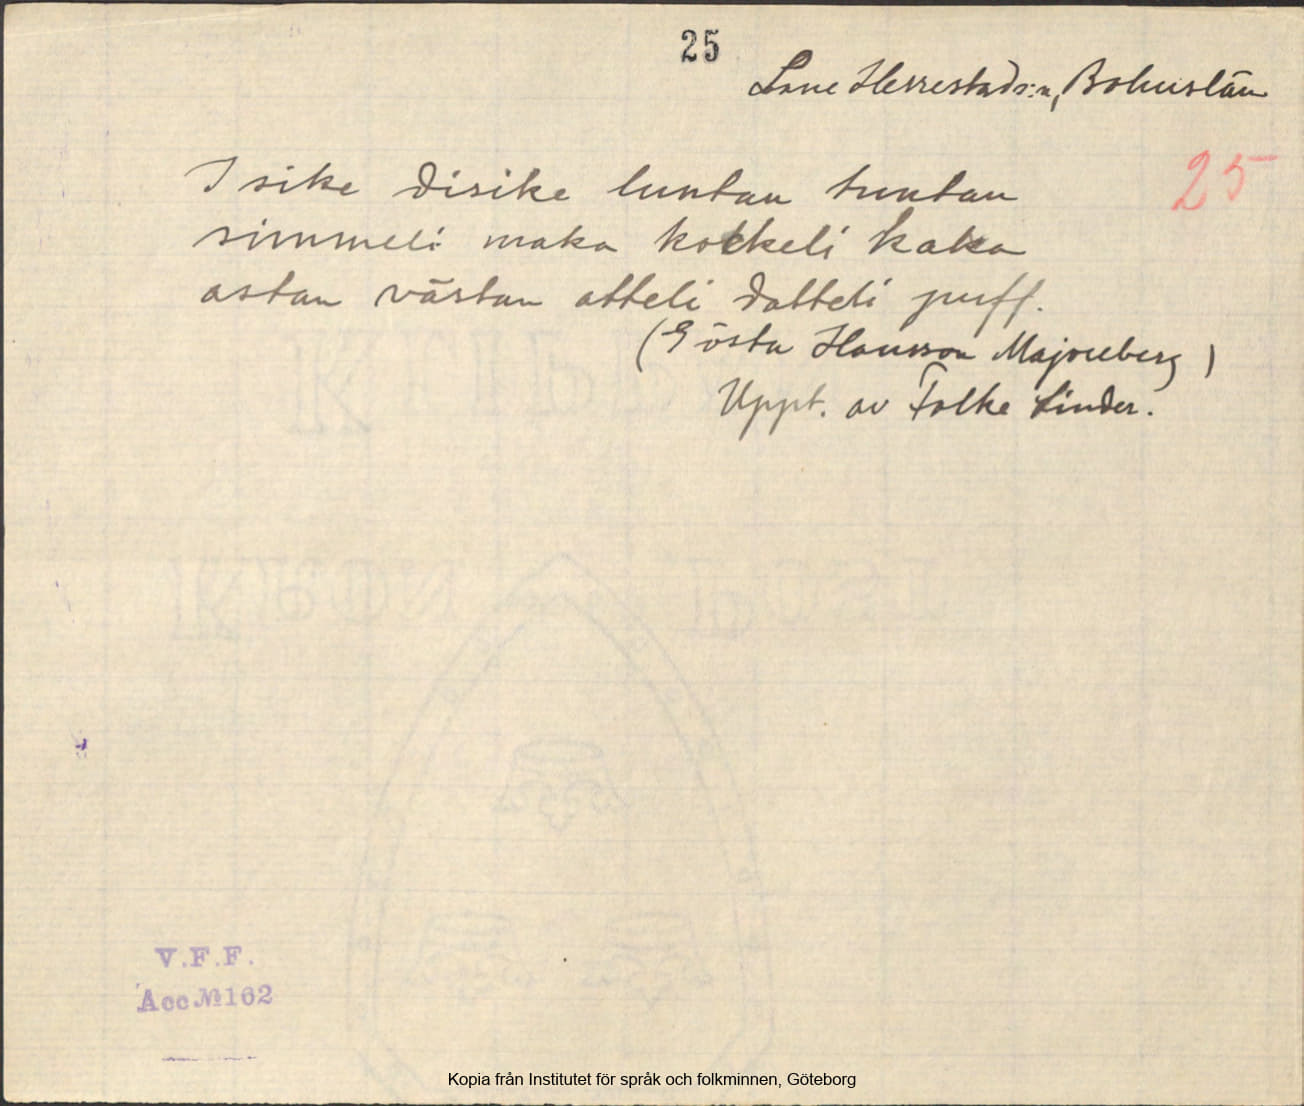 25
Lane Herrestads:n, Bohuslän
25
Isike disike luntan tuntan
simmeli maka kockeli kaka
astan västan atteli datteli puff.
(Gösta Hansson Majoreberg)
Uppt. av Folke Linder.
V.F.F.
Acc № 162
Kopia från Institutet för språk och folkminnen, Göteborg